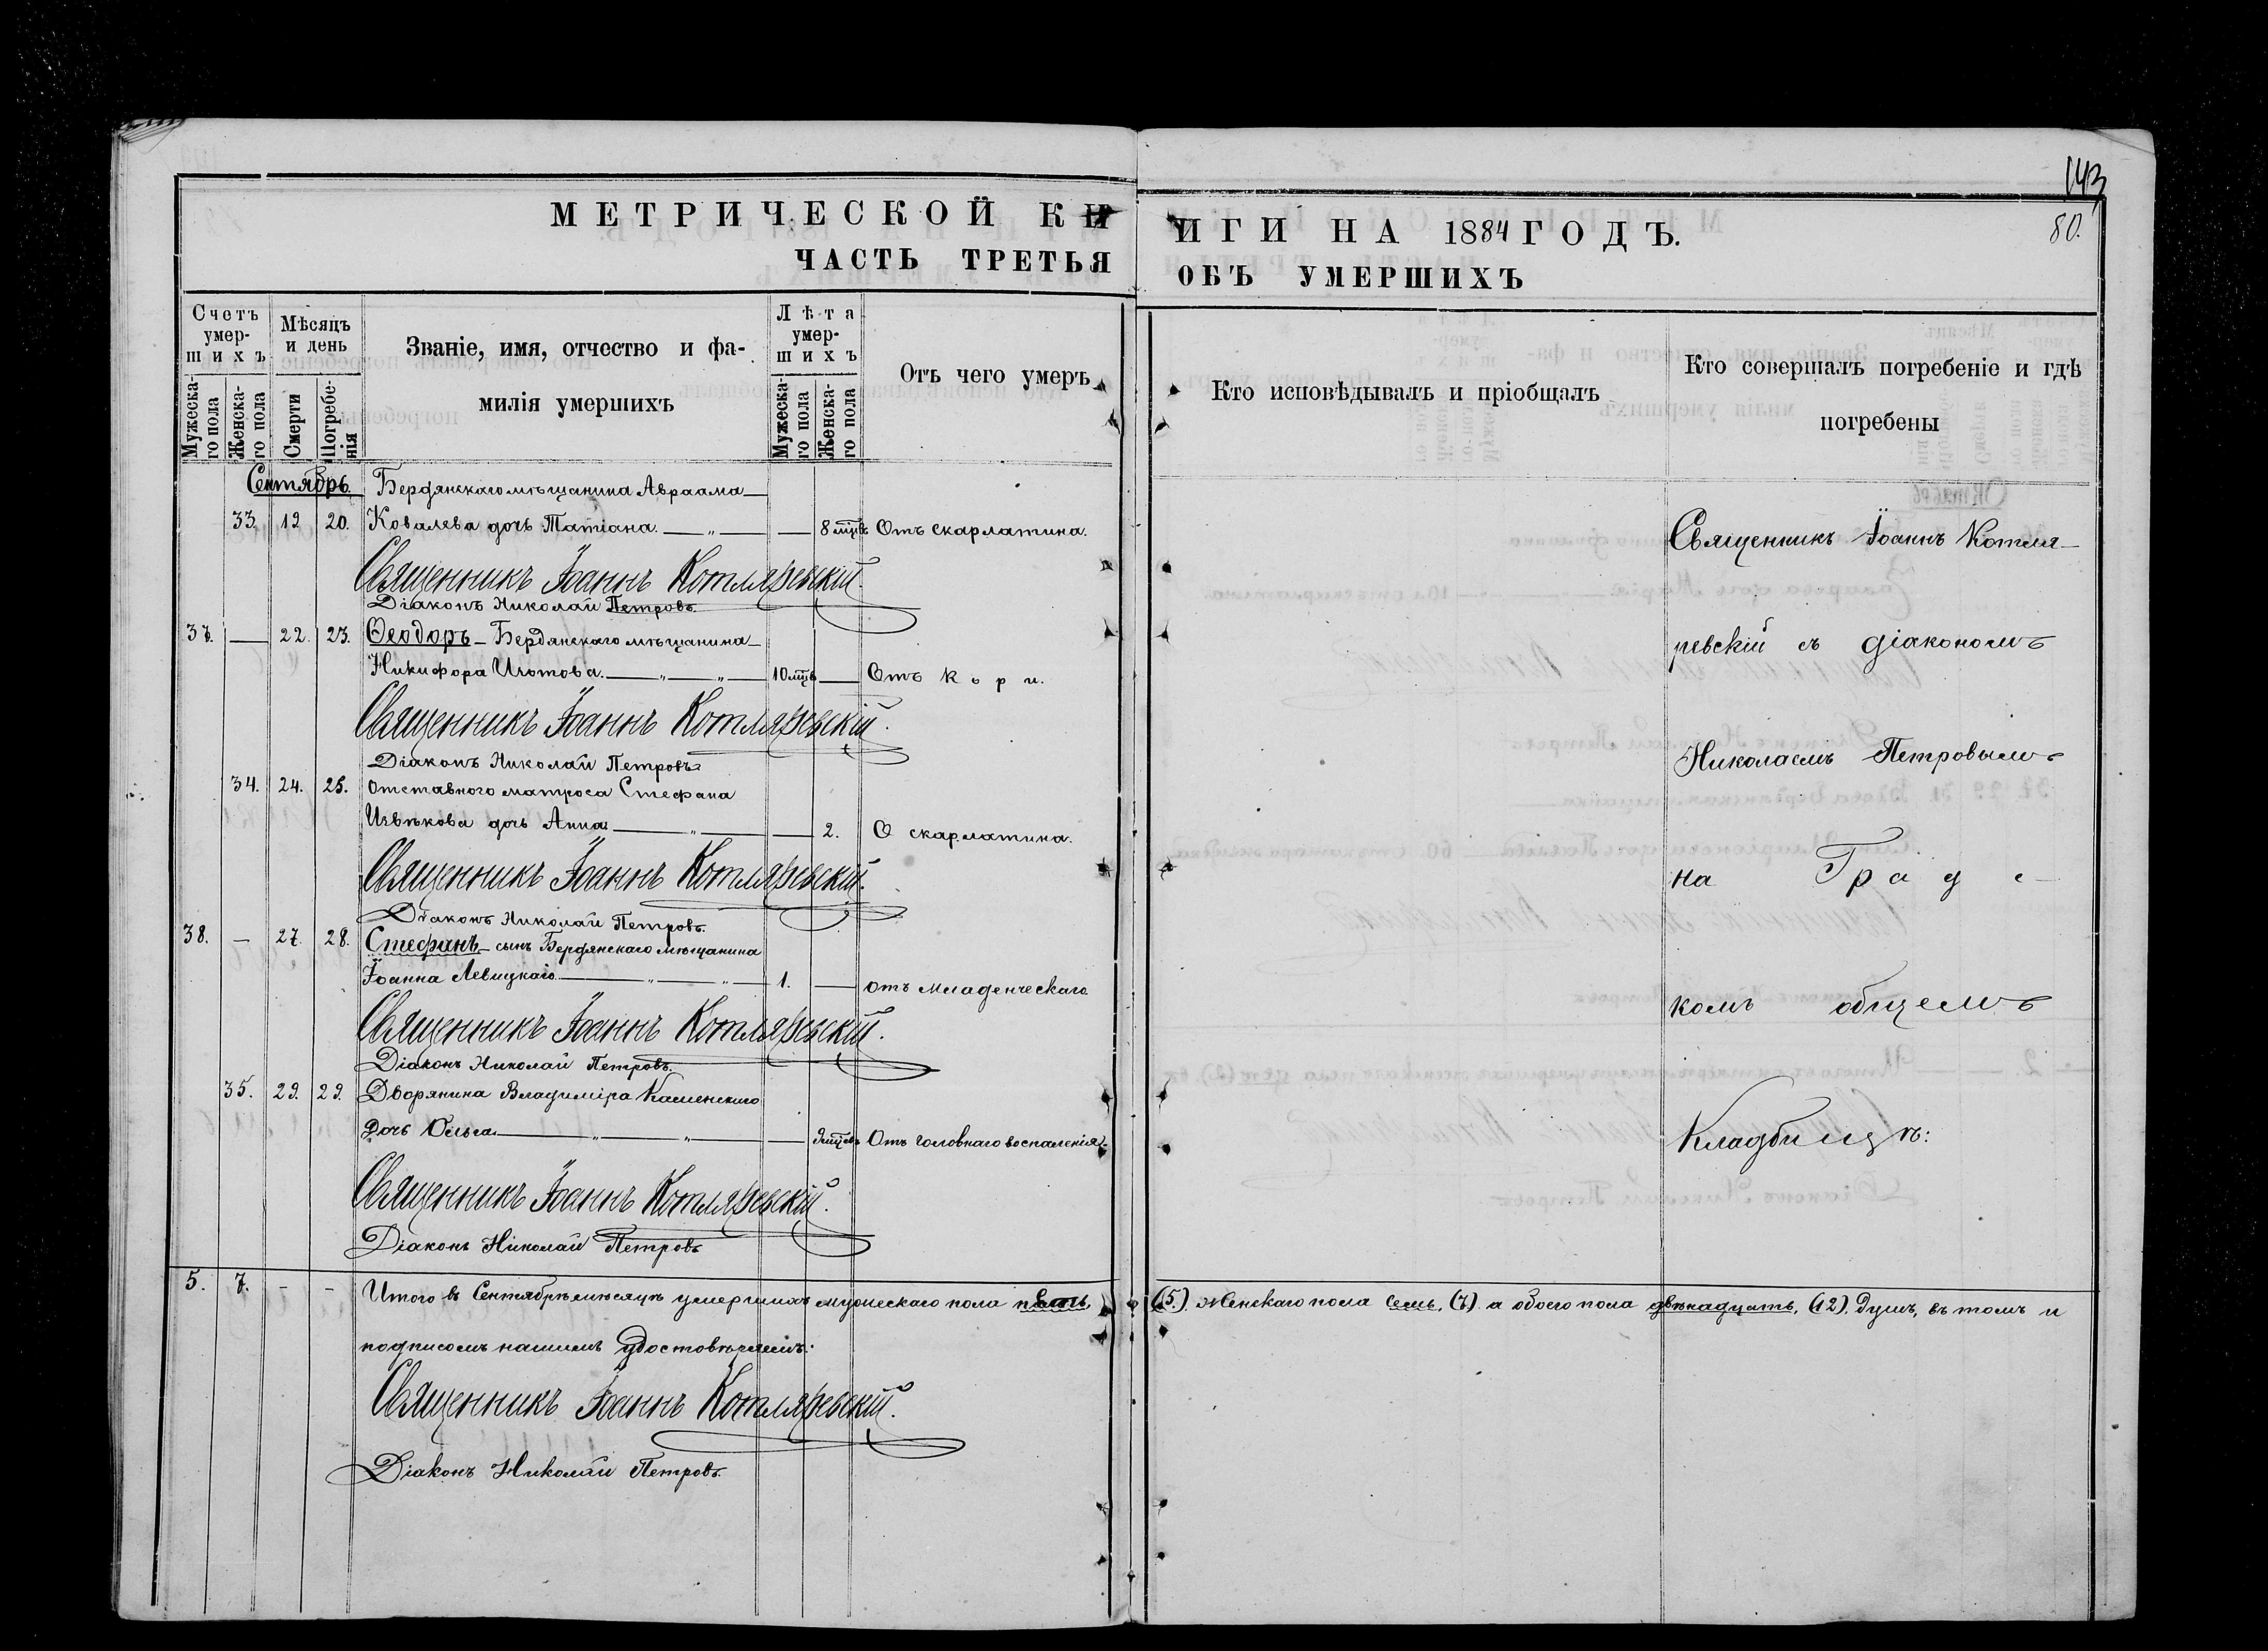 143
80.
МЕТРИЧЕСКОЙ КНИГИ НА 1884 ГОДЪ.
ЧАСТЬ ТРЕТЬЯ ОБЪ УМЕРШИХЪ
Счетъ умер-шихъ
Мужеска-го пола
Женска-го пола
Мѣсяцъ и день
Смерти
Погребе-нія
Званіе, имя, отчество и фа-
милія умершихъ
Лѣта умер-шихъ
Мужеска-го пола
Женска-го пола
Отъ чего умеръ
Кто исповѣдывалъ и пріобщалъ
Кто совершалъ погребеніе и гдѣ
погребены
Сентябрь. Бердянскаго мѣщанина Авраама
33. 12 20. Ковалева дочь Татіана. — „ — — 8 мцв Отъ скарлатина.
Священникъ Іоаннъ Котляревскій.
Діаконъ Николай Петровъ
37. — 22. 23. Ѳеодоръ – Бердянскаго мѣщанина
Никифора Изотова. — „ — „ — 10 мцв — Отъ Кори.
Священникъ Іоаннъ Котляревскій.
Діаконъ Николай Петровъ
34. 24. 25. Отставного матроса Стефана
дочь Анна — „ — — 2. О скарлатина.
Священникъ Іоаннъ Котляревскій.
Діаконъ Николай Петровъ.
38. — 27. 28. Стефанъ – сынъ Бердянскаго мѣщанина
Іоанна Левицкаго. — „ — „ — 1. — отъ Младенческаго
Священникъ Іоаннъ Котляревскій.
Діаконъ Николай Петровъ.
35. 29. 29. Дворянина Владиміра Каменскаго
дочь Ольга. — „ — „ — — Отъ головнаго воспаленія.
Священникъ Іоаннъ Котляревскій.
Діаконъ Николай Петровъ
Священникъ Іоаннъ Котля-
ревскій съ діакономъ
Николаемъ Петровымъ
на Градс-
комъ общемъ
Кладбищѣ:
5. 7. – – Итого въ Сентябрѣ мѣсяцѣ умершихъ мужескаго пола пять (5). женскаго пола семь, (7). а обоего пола двѣнадцать, (12). душъ, въ томъ и
подписомъ нашимъ удостовѣряемъ:
Священникъ Іоаннъ Котляревскій.
Діаконъ Николай Петровъ.